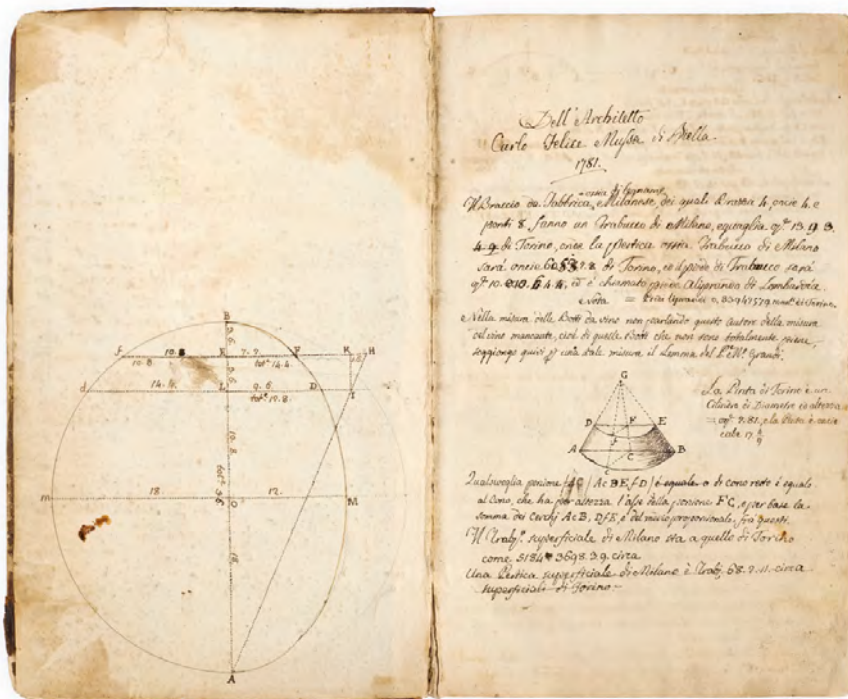 B
9.6.
f 10.8 E 7.7. F K H
10.8. tot.e 14.4.
9.6.
14.4. 9.6.
d L D I
tot.e 19.8.
10.8
tot.e 36
18. 12.
m O M
18
A
Dell'Architetto
Carlo Felice Mussa di Biella.
1781.
ossia di legname
Il Braccio da Fabbrica, Milanese, dei quali Brassa 4, oncie 4. e
ponti 8. fanno un Trabucco di Milano, equaglia 13. 9. 3.
4. 9. di Torino, onde la Pertica ossia Trabucco di Milano
sarà oncie di Torino, ed il piede di Trabucco sarà
ed è chiamato piede Aliprando di Lombardia.
Nota =
Nella misura delle Botti da vino non parlando questo Autore della misura
del vino mancante, cioè di quelle Botti che non sono totalmente piene,
soggiongo quivi una tale misura il Lemma del P. Grandi.
G
D F E
A C B
La Pinta di Torino è un
Cilindro di Diametro ed altezza
= 7.81. e la Pinta è oncie
cube 17.
Qualsivoglia porzione AcBEfD è eguale o di cono retto è eguale
al Cono, che ha per altezza l'asse della porzione FC, e per base la
somma dei Cerchj AcB, DfE, e del mezzo proporzionale fra questi.
Il superficiale di Milano sta a quello di Torino
come 5184 3698.3.9. circa
Una Pertica superficiale di Milano è 68. 7. 11. circa
superficiali di Torino.